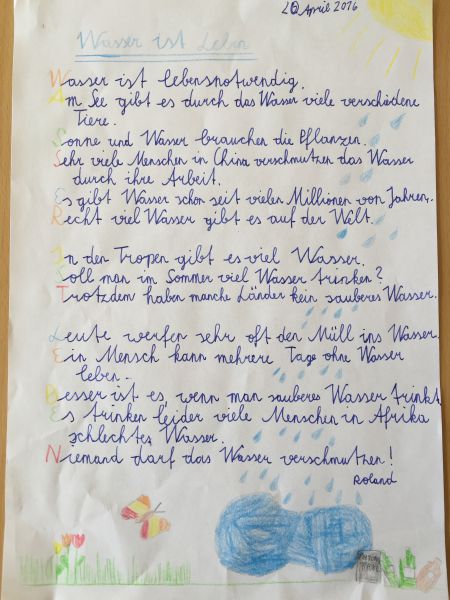 20 April 2016
Wasser ist Leben
Wasser ist lebensnotwendig.
Am See gibt es durch das Wasser viele verschiedene
Tiere.
Sonne und Wasser brauchen die Pflanzen.
Sehr viele Menschen in China verschmutzen das Wasser
durch ihre Arbeit.
Es gibt Wasser schon seit vielen Millionen von Jahren.
Recht viel Wasser gibt es auf der Welt.
In den Tropen gibt es viel Wasser.
Soll man im Sommer viel Wasser trinken?
Trotzdem haben manche Länder kein sauberes Wasser.
Leute werfen sehr oft den Müll ins Wasser.
Ein Mensch kann mehrere Tage ohne Wasser
leben.
Besser ist es, wenn man sauberes Wasser trinkt.
Es trinken leider viele Menschen in Afrika
schlechtes Wasser.
Niemand darf das Wasser verschmutzen!
Roland